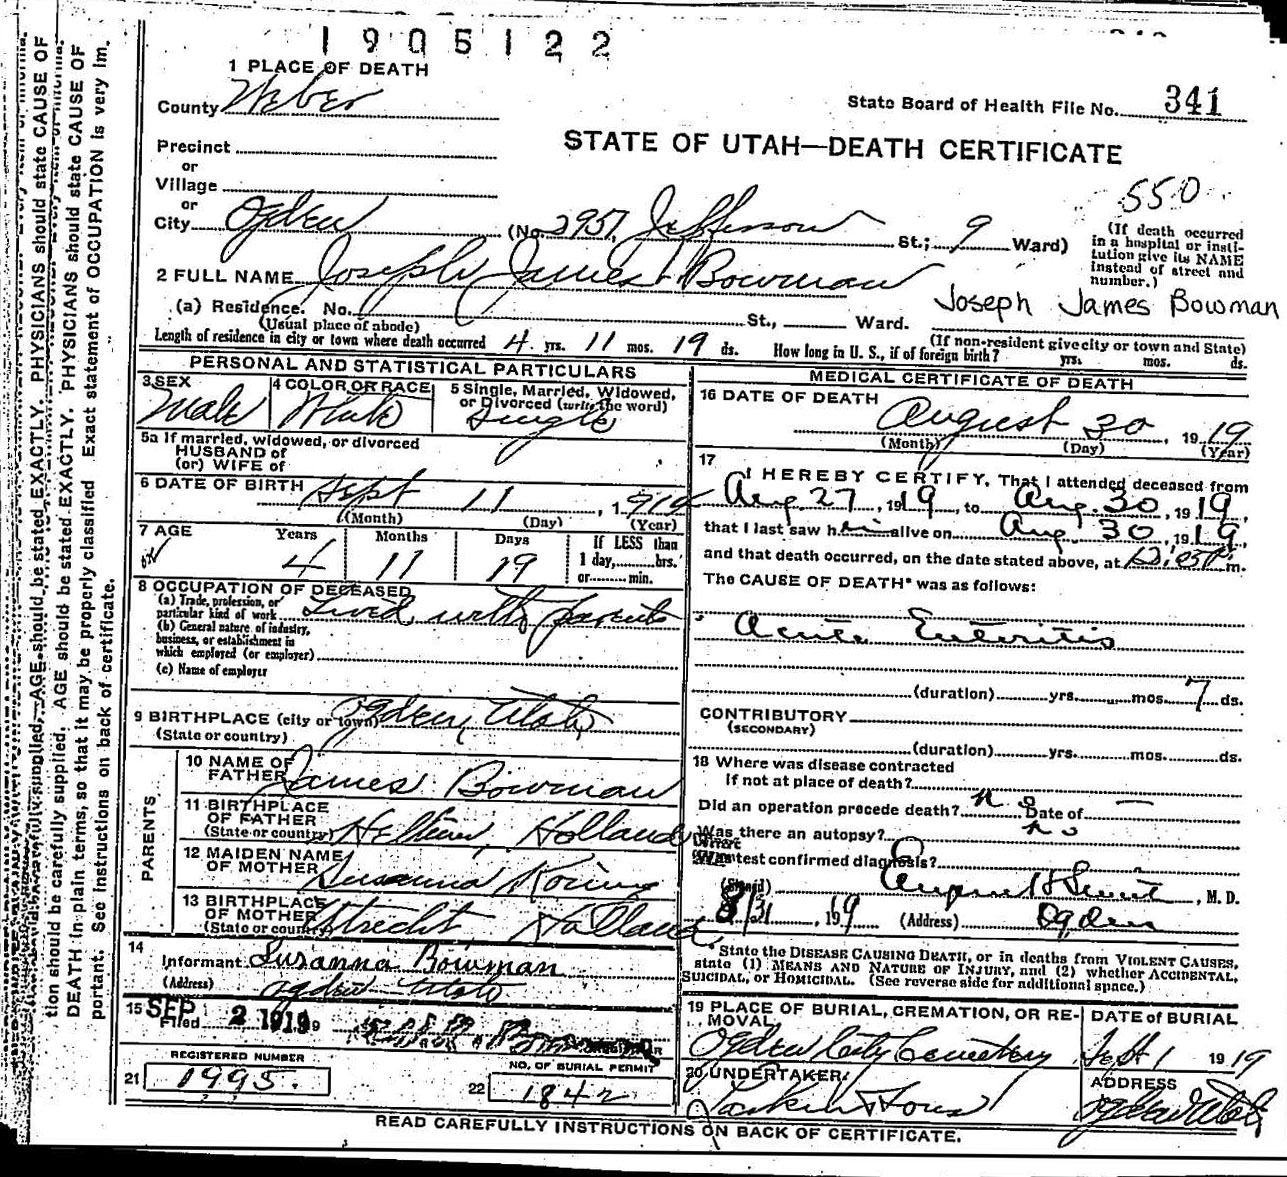 1905122
1 PLACE OF DEATH
County Weber
State Board of Health File No. 341
STATE OF UTAH—DEATH CERTIFICATE
Precinct
or
Village
or
City Ogden (No. 2957, Jefferson St.; 9 Ward)
550
(If death occurred
in a hospital or insti-
tution give its NAME
instead of street and
number.)
2 FULL NAME Joseph James Bowman
Joseph James Bowman
(a) Residence. No. St., Ward.
(Usual place of abode)
(If non-resident give city or town and State)
Length of residence in city or town where death occurred 4 yrs. 11 mos. 19 ds. How long in U. S., if of foreign birth? yrs. mos. ds.
PERSONAL AND STATISTICAL PARTICULARS
3 SEX
Male
4 COLOR OR RACE
White
5 Single, Married, Widowed,
or Divorced (write the word)
Single
5a If married, widowed, or divorced
HUSBAND of
(or) WIFE of
6 DATE OF BIRTH Sept 11, 1914
(Month) (Day) (Year)
7 AGE Years Months Days If LESS than
4 11 19 1 day, hrs.
or min.
8 OCCUPATION OF DECEASED
(a) Trade, profession, or
particular kind of work Lived with parents
(b) General nature of industry,
business, or establishment in
which employed (or employer)
(c) Name of employer
9 BIRTHPLACE (city or town) Ogden, Utah
(State or country)
PARENTS
10 NAME OF
FATHER James Bowman
11 BIRTHPLACE
OF FATHER
(State or country) Holland
12 MAIDEN NAME
OF MOTHER Susanna
13 BIRTHPLACE
OF MOTHER
(State or country) Utrecht, Holland
14
Informant Susanna Bowman
(Address) Ogden Utah
15 Filed SEP 2 1919
REGISTERED NUMBER
21 1995.
NO. OF BURIAL PERMIT
22 1842
MEDICAL CERTIFICATE OF DEATH
16 DATE OF DEATH
August 30, 1919
(Month) (Day) (Year)
17
I HEREBY CERTIFY, That I attended deceased from
Aug. 27, 1919, to Aug. 30, 1919,
that I last saw him alive on Aug. 30, 1919,
and that death occurred, on the date stated above, at m.
The CAUSE OF DEATH* was as follows:
Acute Enteritis
(duration) yrs. mos. 7 ds.
CONTRIBUTORY
(SECONDARY)
(duration) yrs. mos. ds.
18 Where was disease contracted
if not at place of death?
Did an operation precede death? no Date of —
Was there an autopsy? no
What test confirmed diagnosis?
(Signed) , M. D.
8/31, 1919 (Address) Ogden
*State the DISEASE CAUSING DEATH, or in deaths from VIOLENT CAUSES,
state (1) MEANS AND NATURE OF INJURY, and (2) whether ACCIDENTAL,
SUICIDAL, or HOMICIDAL. (See reverse side for additional space.)
19 PLACE OF BURIAL, CREMATION, OR RE-
MOVAL
Ogden City Cemetery
DATE of BURIAL
Sept 1 1919
20 UNDERTAKER
Larkin & Sons
ADDRESS
Ogden Utah
READ CAREFULLY INSTRUCTIONS ON BACK OF CERTIFICATE.
tion should be carefully supplied. AGE should be stated EXACTLY. PHYSICIANS should state CAUSE OF
DEATH in plain terms, so that it may be properly classified. Exact statement of OCCUPATION is very im-
portant. See instructions on back of certificate.